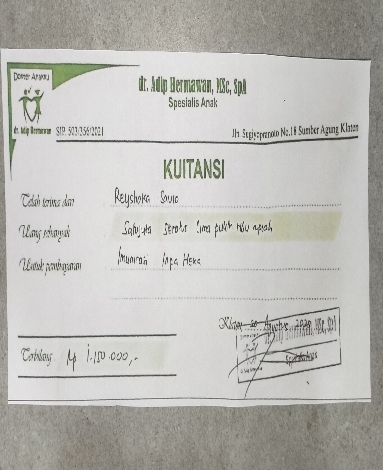 Dokter Anakku
dr. Adip Hermawan
dr. Adip Hermawan, MSc, SpA
Spesialis Anak
SIP. 503/356/2021
Jln. Sugiyopranoto No.16 Sumber Agung Klaten
KUITANSI
Telah terima dari Reyshaka
Uang sebanyak Satujuta Seratus Lima puluh ribu rupiah
Untuk pembayaran Imunisasi Infa Hexa
Klaten, 20 Agustus
Terbilang Rp 1.150.000,-